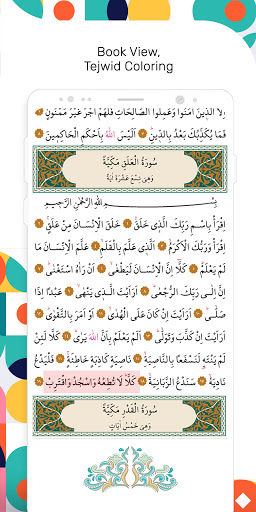 Book View,
Tejwid Coloring
اِلَّا الَّذ۪ينَ اٰمَنُوا وَعَمِلُوا الصَّالِحَاتِ فَلَهُمْ اَجْرٌ غَيْرُ مَمْنُونٍ
فَمَا يُكَذِّبُكَ بَعْدُ بِالدّ۪ينِ اَلَيْسَ اللّٰهُ بِاَحْكَمِ الْحَاكِم۪ينَ
سُورَةُ الْعَلَقِ مَكِّيَّةٌ
وَهِىَ تِسْعَ عَشْرَةَ اٰيَةً
بِسْمِ اللّٰهِ الرَّحْمٰنِ الرَّح۪يمِ
اِقْرَأْ بِاسْمِ رَبِّكَ الَّذ۪ى خَلَقَ خَلَقَ الْاِنْسَانَ مِنْ عَلَقٍ
اِقْرَأْ وَرَبُّكَ الْاَكْرَمُ اَلَّذ۪ى عَلَّمَ بِالْقَلَمِ عَلَّمَ الْاِنْسَانَ مَا
لَمْ يَعْلَمْ كَلَّا اِنَّ الْاِنْسَانَ لَيَطْغٰى اَنْ رَاٰهُ اسْتَغْنٰى
اِنَّ اِلٰى رَبِّكَ الرُّجْعٰى اَرَاَيْتَ الَّذ۪ى يَنْهٰى عَبْدًا اِذَا
صَلّٰى اَرَاَيْتَ اِنْ كَانَ عَلَى الْهُدٰى اَوْ اَمَرَ بِالتَّقْوٰى
اَرَاَيْتَ اِنْ كَذَّبَ وَتَوَلّٰى اَلَمْ يَعْلَمْ بِاَنَّ اللّٰهَ يَرٰى كَلَّا لَئِنْ
لَمْ يَنْتَهِ لَنَسْفَعًا بِالنَّاصِيَةِ نَاصِيَةٍ كَاذِبَةٍ خَاطِئَةٍ فَلْيَدْعُ
نَادِيَهُ سَنَدْعُ الزَّبَانِيَةَ كَلَّا لَا تُطِعْهُ وَاسْجُدْ وَاقْتَرِبْ
سُورَةُ الْقَدْرِ مَكِّيَّةٌ
وَهِىَ خَمْسُ اٰيَاتٍ